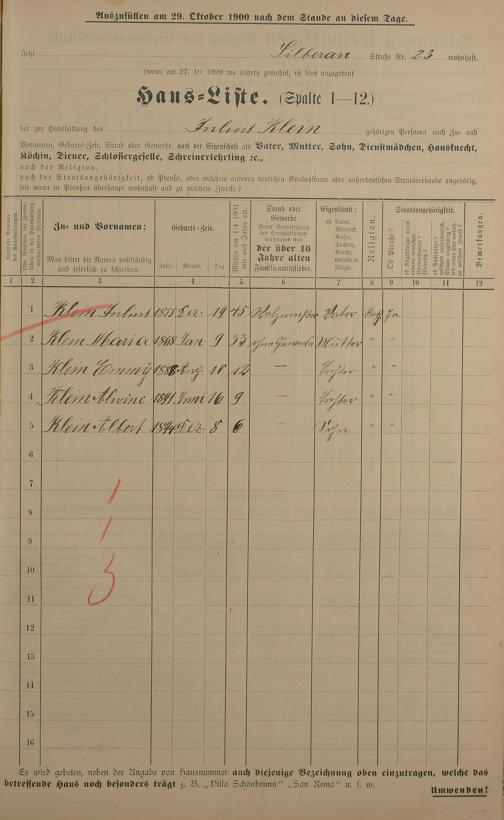 Auszufüllen am 29. Oktober 1900 nach dem Stande an diesem Tage.
Jetzt Silberau Straße Nr. 23 wohnhaft.
(wenn am 27. 10. 1899 wo anders gewohnt, ist dies anzugeben)
Haus-Liste. (Spalte 1—12.)
der zur Haushaltung des Julius Klein gehörigen Personen nach Zu- und
Vornamen, Geburts-Zeit, Stand oder Gewerbe, nach der Eigenschaft als Vater, Mutter, Sohn, Dienstmädchen, Hausknecht,
Köchin, Diener, Schlossergeselle, Schreinerlehrling ꝛc.,
nach der Religion,
nach der Staatsangehörigkeit, ob Preuße, oder welchem anderen deutschen Bundesstaate oder außerdeutschen Staatsverbande angehörig,
seit wann in Preußen überhaupt wohnhaft und zu welchem Zwecke?
Zu- und Vornamen:
Man bittet die Namen vollständig und leserlich zu schreiben.
Geburts-Zeit.
Jahr. Monat. Tag.
Mithin am 1/4 1901 wie viel Jahre alt.
Stand oder Gewerbe
der über 16 Jahre alten Familienmitglieder.
Eigenschaft:
ob Vater, Mutter, Sohn, Tochter, Knecht, Geselle rc. Magd.
Religion.
Staatsangehörigkeit.
Ob Preuße?
Bemerkungen.
1 2 3 4 5 6 7 8 9 10 11 12
1 Klein Julius 1855 Dez. 19 45 Vater Ja
2 Klein Maria 1868 Jan 9 33 ohne Gewerbe Mutter " "
3 Klein Emmy 1888 Aug. 18 12 — Tochter " "
4 Klein Alwine 1891 Juni 16 9 — Tochter " "
5 Klein Albert 1894 Dez. 8 6 — Sohn " "
6
7
8
9
10
11
12
13
14
15
16
1
1
3
Es wird gebeten, neben der Angabe von Hausnummer auch diejenige Bezeichnung oben einzutragen, welche das
betreffende Haus noch besonders trägt z. B. „Villa Schönbrunn" „San Remo" u. s. w.
Umwenden!